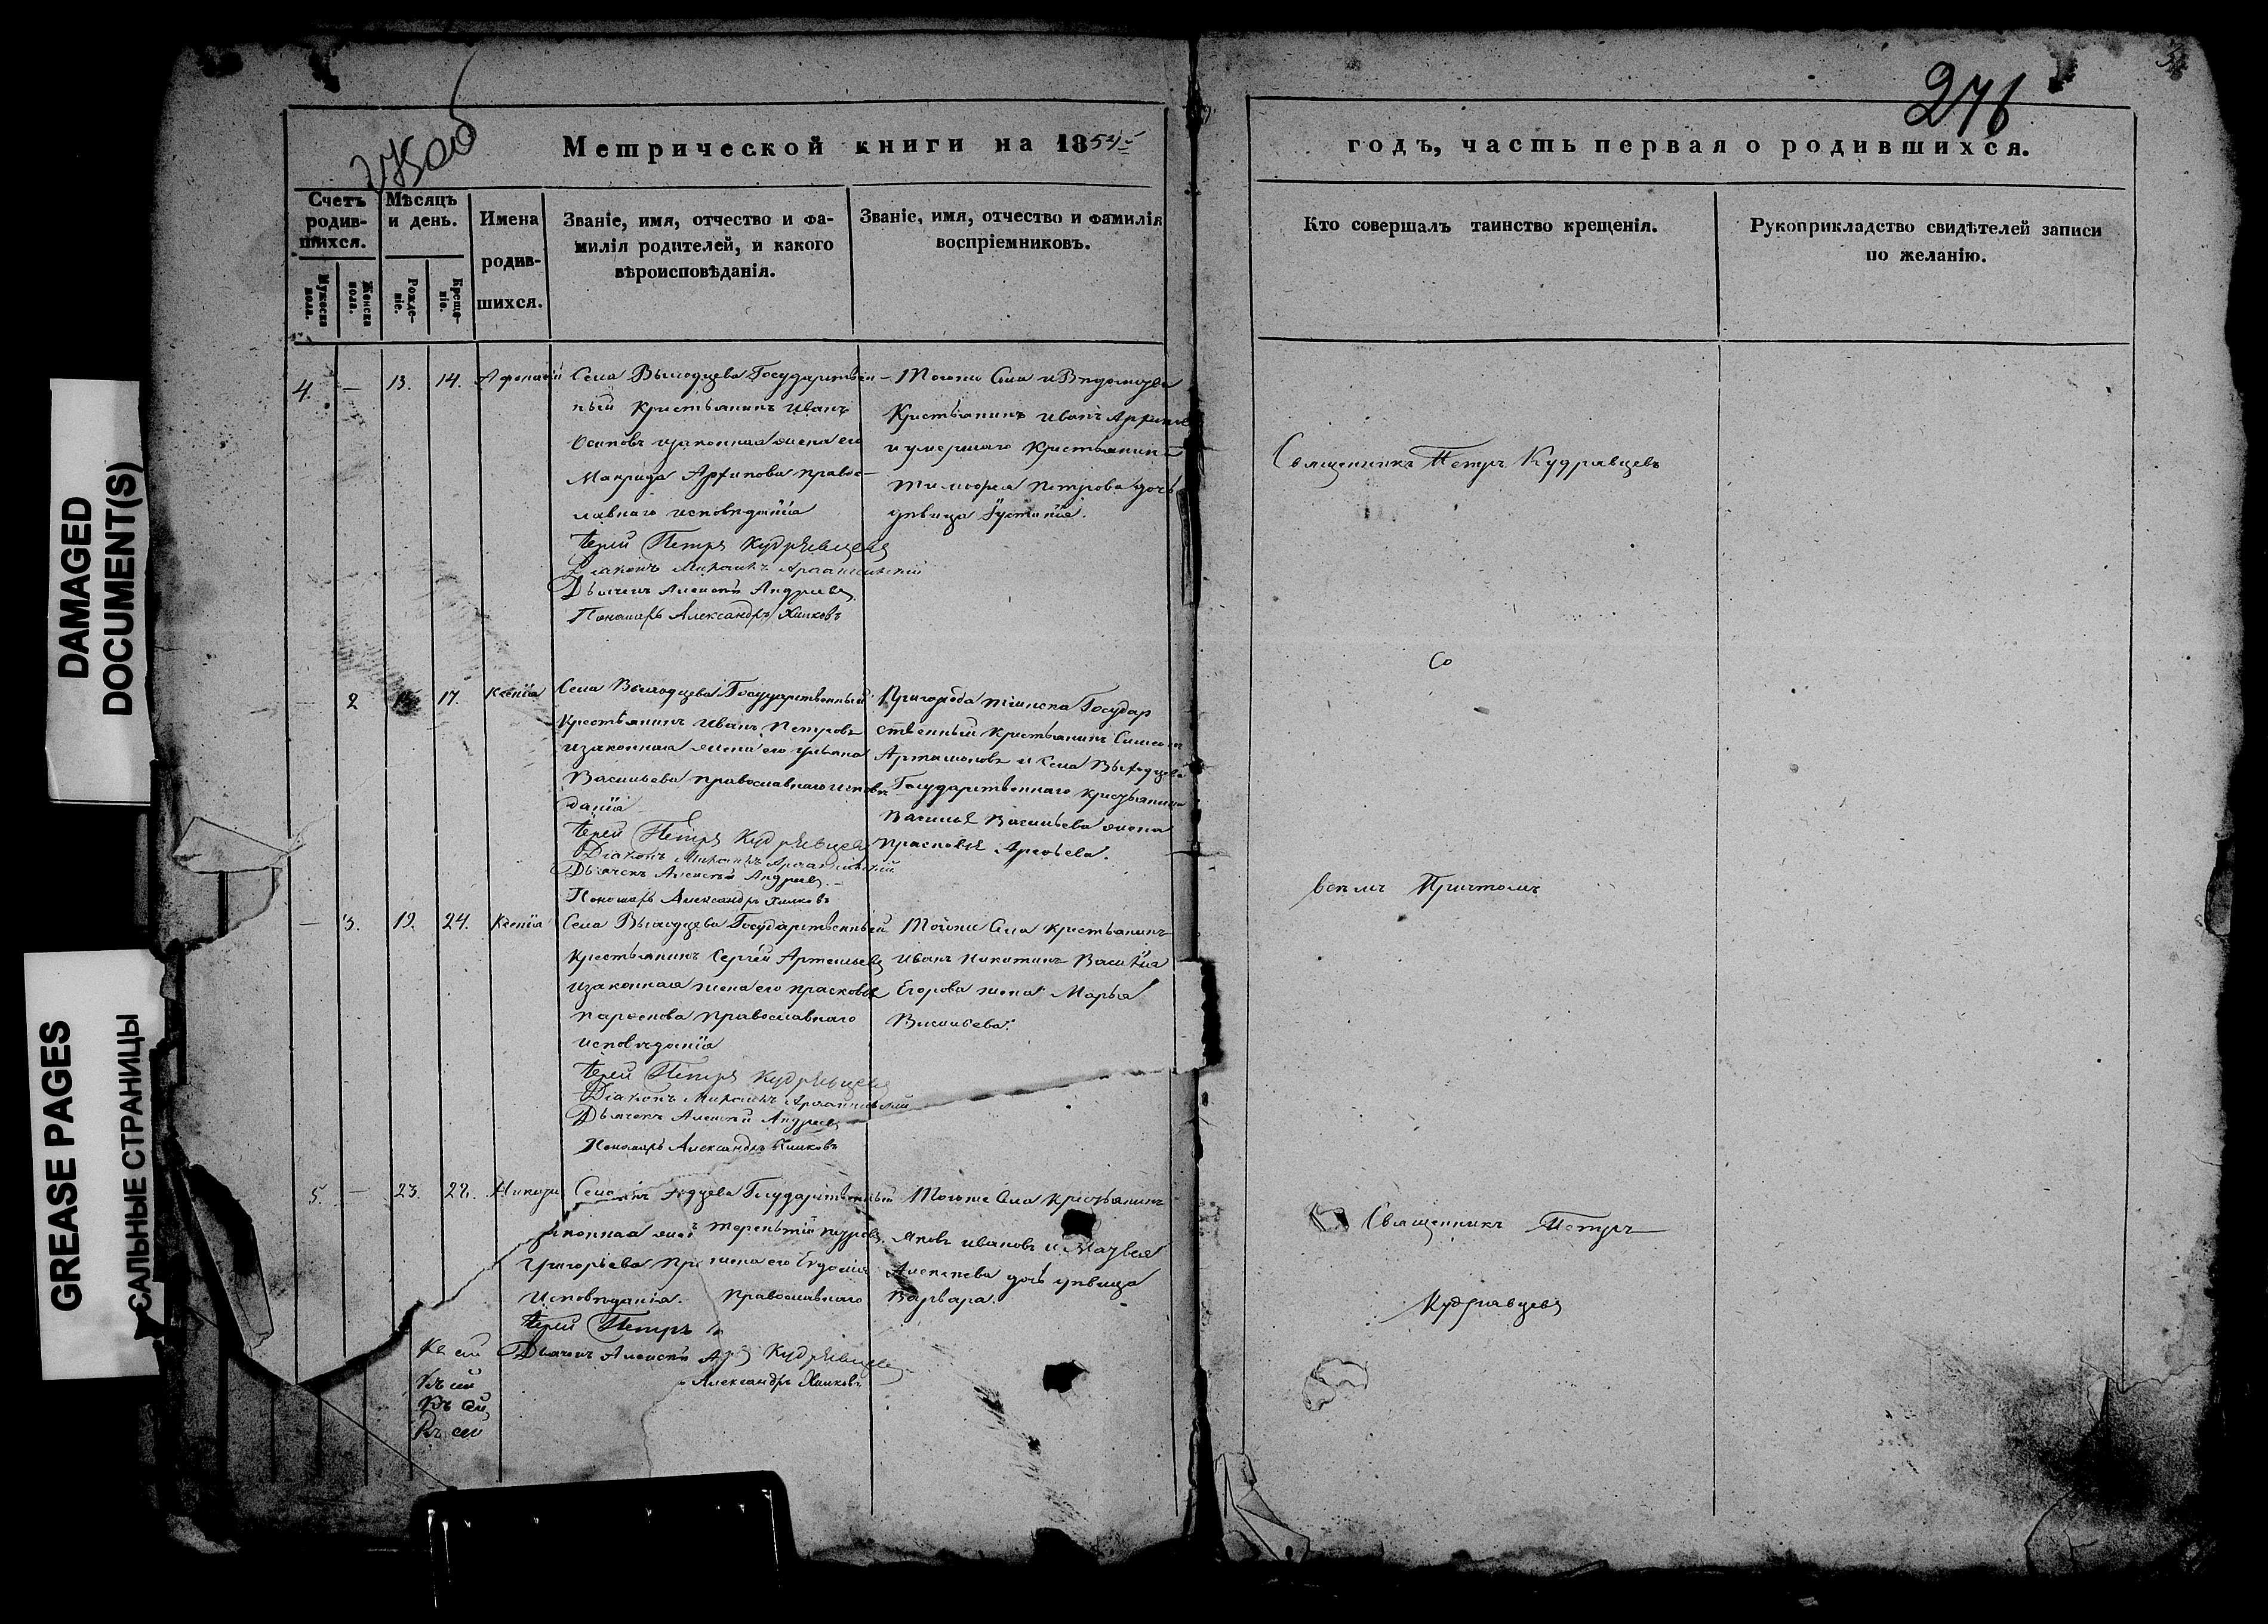 DAMAGED
DOCUMENT(S)
GREASE PAGES
САЛЬНЫЕ СТРАНИЦЫ
275об
Метрической книги на 1854
Счетъ
родив-
шихся.
Мужеска
пола.
Женска
пола.
Мѣсяцъ
и день.
Рожде-
ніе.
Креще-
ніе.
Имена
родив-
шихся.
Званіе, имя, отчество и фа-
милія родителей, и какого
вѣроисповѣданія.
Званіе, имя, отчество и фамилія
воспріемниковъ.
4. — 13. 14. Афанасій
Села Выходцева Государствен-
ный Крестьянинъ Иванъ
Осиповъ изаконная жена его
Макрида Архипова правос-
лавнаго исповѣданія
Іерей Петръ Кудрявцевъ
Діаконъ Михаилъ
Дьячекъ Алексѣй Андреевъ
Пономарь Александръ Хилковъ
Тогоже Села
Крестьянинъ Иванъ
и умершаго Крестьянина
Тимофея Петрова дочь
дѣвица Іустинія.
2 17. Ксенія
Села Выходцева Государственный
Крестьянинъ Иванъ Петровъ
изаконная жена его Ульяна
Васильева православнаго исповѣ
данія
Іерей Петръ Кудрявцевъ
Діаконъ Михаилъ
Дьячекъ Алексѣй Андреевъ
Пономарь Александръ Хилковъ
Пригорода Государ
ственный Крестьянинъ
Артамоновъ и Села Выходцева
Государственнаго крестьянина
Василья Васильева жена
Прасковья
— 3. 19. 24. Ксенія
Села Выходцева Государственный
Крестьянинъ Сергей Артемьевъ
изаконная жена его Прасковья
Парфенова Православнаго
исповѣданія
Іерей Петръ Кудрявцевъ
Діаконъ Михаилъ
Дьячекъ Алексѣй Андреевъ
Пономарь Александръ Хилковъ
Тогоже Села крестьянинъ
Иванъ Никитинъ Василія
Егорова жена Марья
Васильева.
5. — 23. 28.
Села Государственный
Терентій
Григорьева жена его
Исповѣданія. Православнаго
Іерей Петръ Кудрявцевъ
Дьячекъ Алексѣй
Александръ Хилковъ
Тогоже Села Крестьянинъ
Яковъ Ивановъ и Матвея
Алексеева дочь дѣвица
Варвара.
Къ сей
Къ сей
Къ сей
Къ сей
276
годъ, часть первая о родившихся.
Кто совершалъ таинство крещенія.
Рукоприкладство свидѣтелей записи
по желанію.
Священникъ Петръ Кудрявцевъ
Со
всѣмъ Причтомъ
Священникъ Петръ
Кудрявцевъ